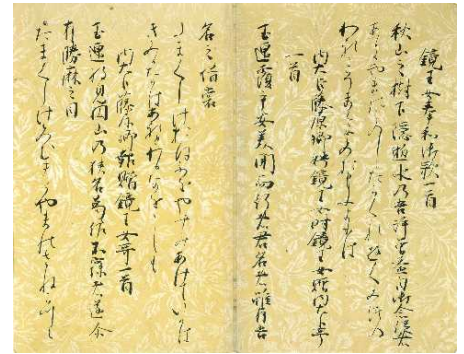 鏡王女奉和御歌一首
秋山之樹下隠逝水乃吾許曽益目御念従者
あきやまのこのしたかくれゆくみつの
われこそまさめ
内大臣藤原卿娉鏡王女時鏡王女贈内大臣
一首
玉匣覆乎安美開而行者君名者雖有吾
名之惜裳
たまくしけおほふをやすみあけていなは
きみかなはあれとわかなしをしも
内大臣藤原卿報贈鏡王女歌一首
玉匣将見圓山乃狭名葛佐不寐者遂尓
有勝麻之自
たまくしけみむろとやまのさね